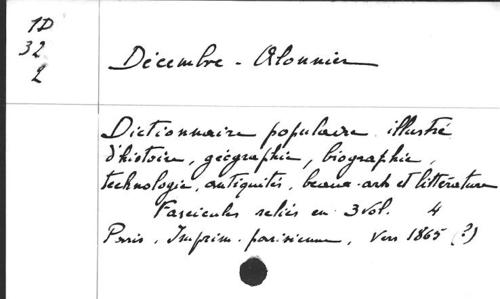 1D
32
2
Décembre - Alonnier
Dictionnaire populaire illustré
d'histoire, géographie, biographie,
technologie, antiquités, beaux-arts et littérature
Fascicules reliés en 3 vol. 4
Paris, Imprim. parisienne, vers 1865 (?)